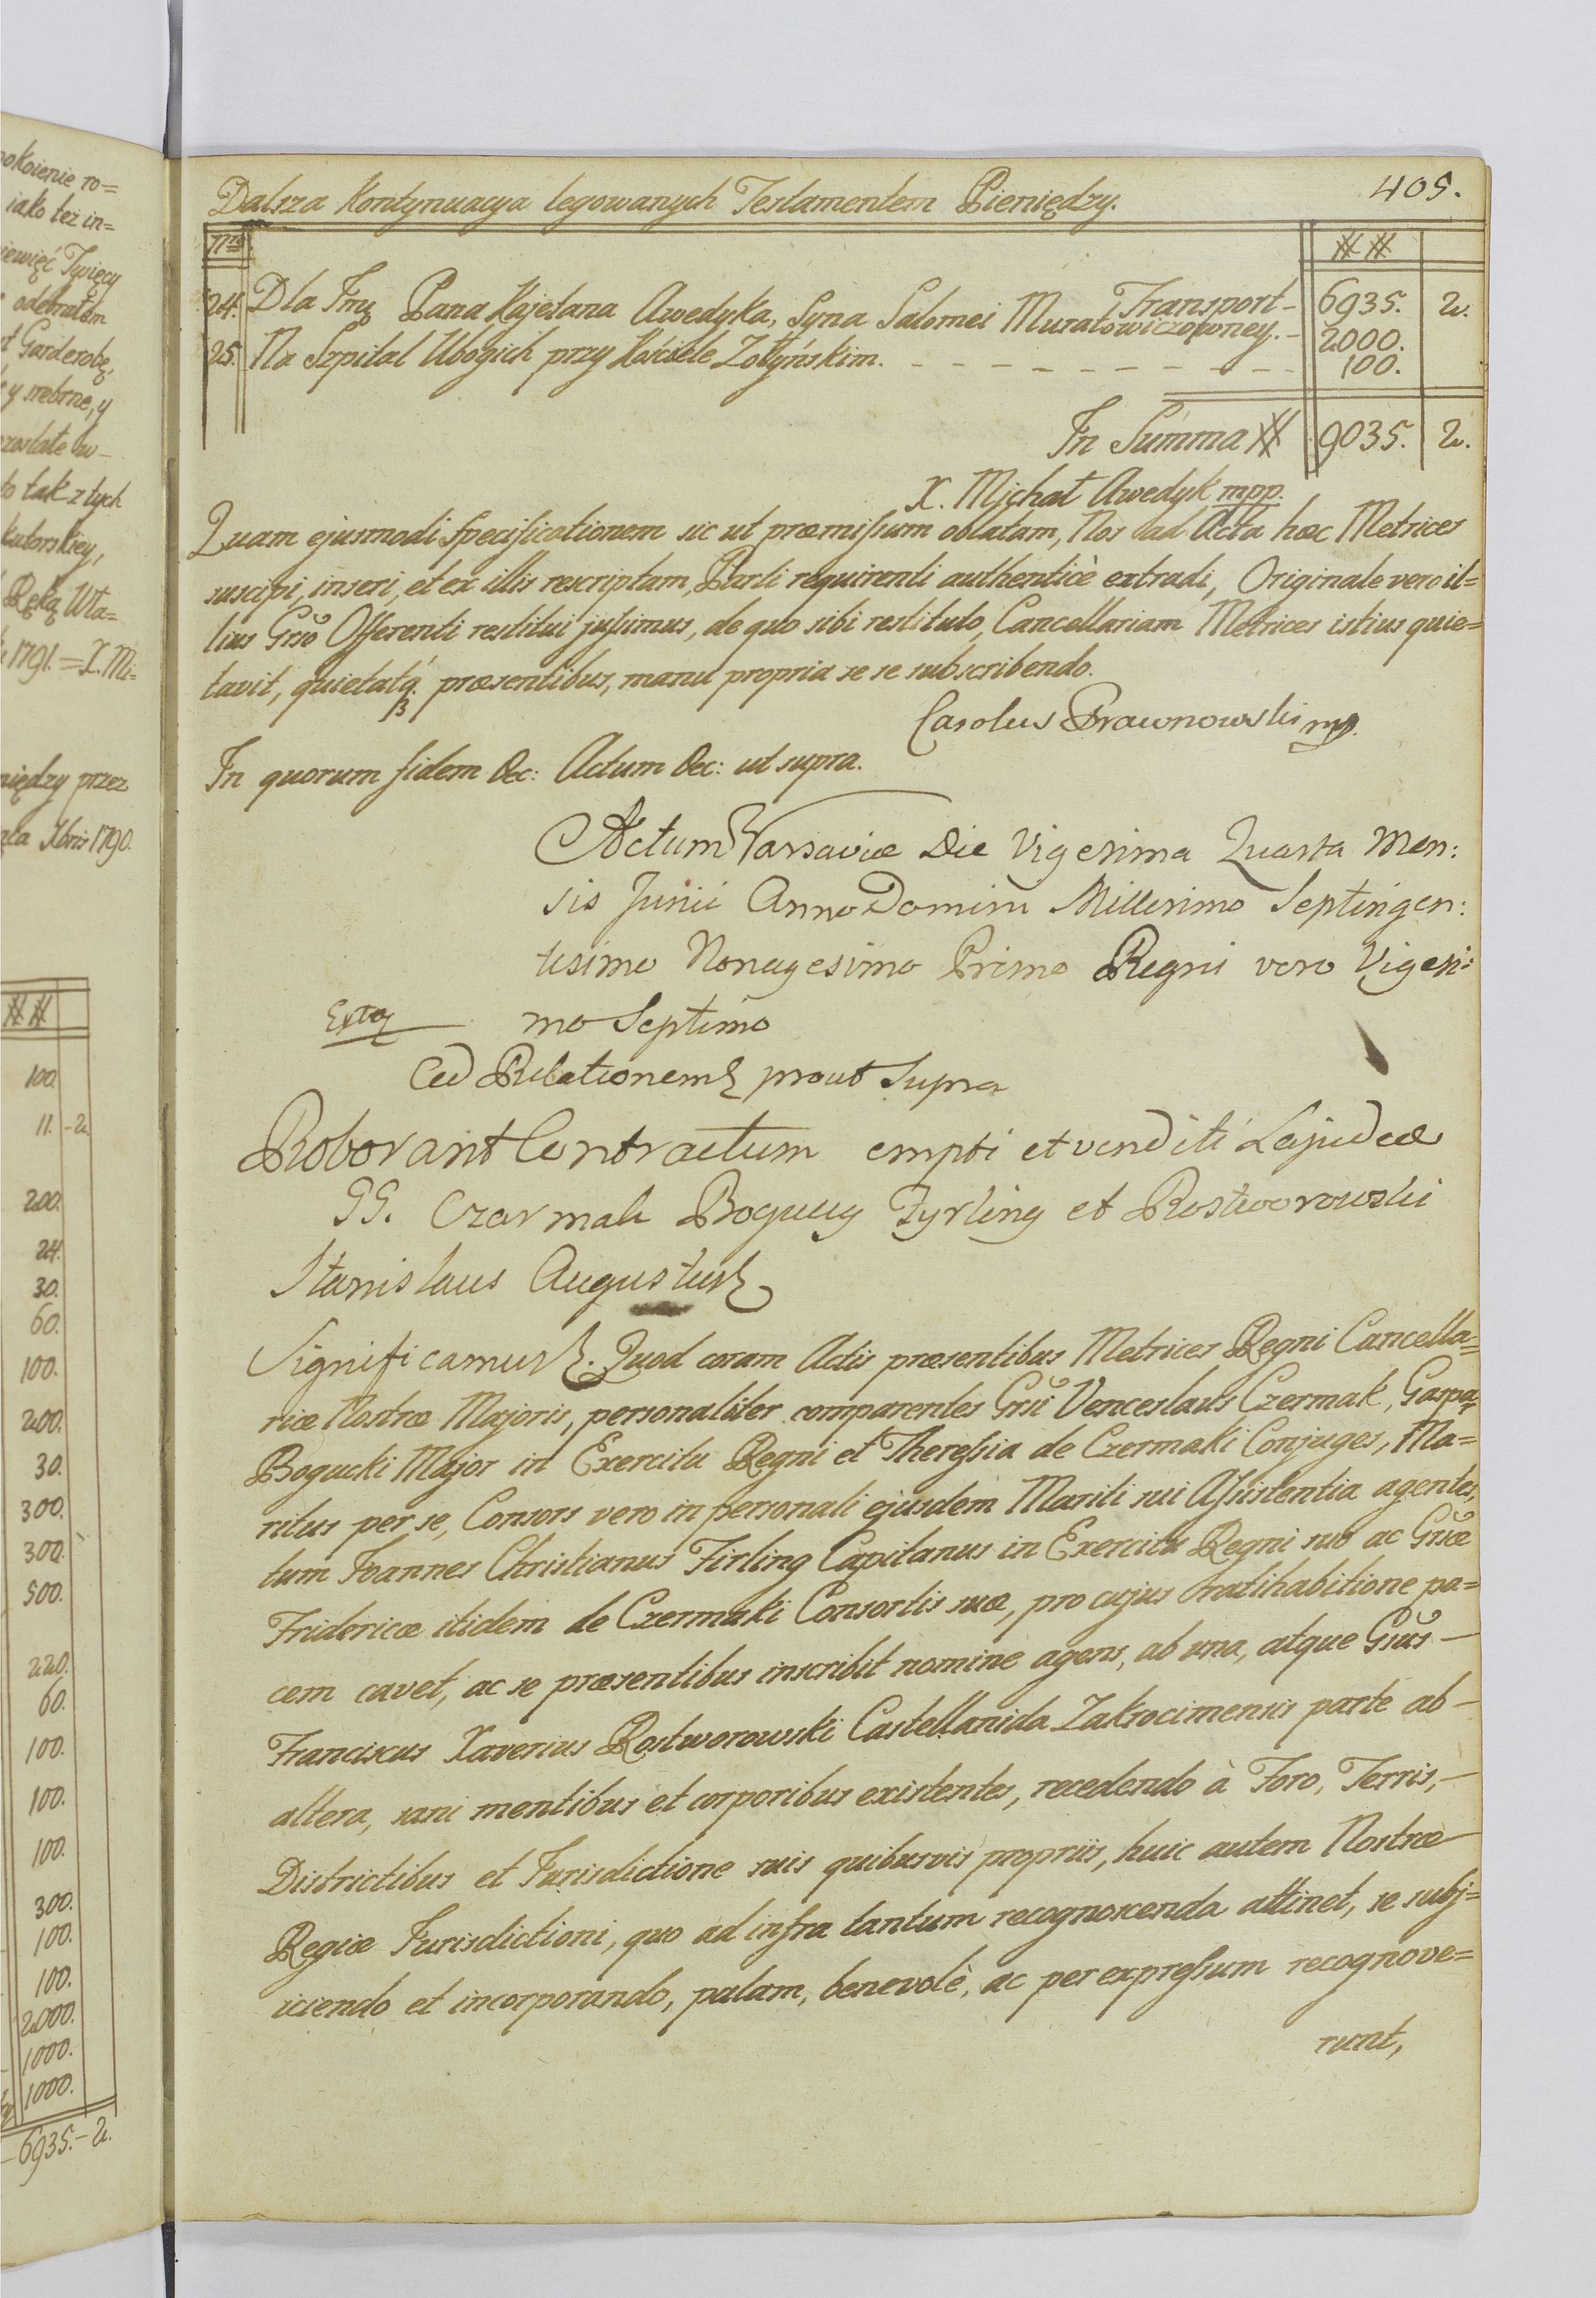 okoienie ro=
iako też in=
iewięć Tysięcy
odebrałem
t Garderobę,
y srebrne, y
zostałe w-
to tak z tych
kutorskiey,
Ręką Wła=
1791. = X. Mi=
niędzy przez
Xbris 1790.
## 
100.
11. - 2.
200.
24.
30.
60.
100.
200.
30.
300.
300.
500.
220.
60.
100.
100.
100.
300.
100.
100.
2000.
1000.
1000.
6935. - 2.
405.
Dalsza Kontynuacya legowanych Testamentem Pieniędzy.
Nro ##
Transport - 6935. 2.
24. Dla Jmę Pana Kajetana Awedyka, Syna Salomei Muratowiczopowney. - 2000.
25. Na Szpital Ubogich przy Kościele Zołyńskim. - - - - - - - - - - 100.
In Summa # 9035. 2.
X. Michał Awedyk mpp.
Quam ejusmodi Specificationem sic ut præmissum oblatam, Nos ad Acta hæc Metrices
suscipi, inseri, et ex illis rescriptam, Parti requirenti authenticè extradi, Originale vero il=
lius Gso Offerenti restitui jussimus, de quo sibi restituto, Cancellariam Metrices istius quie=
tavit, quietatq. præsentibus, manu propria se se subscribendo.
Carolus Brawnowski mp.
In quorum fidem &c: Actum &c: ut supra.
Actum Varsaviæ Die Vigesima Quarta Men:
sis Junii Anno Domini Millesimo Septingen:
tesimo Nonagesimo Primo Regni vero Vigesi:
mo Septimo
Ad Relationem prout Supra
Roborant Contractum empti et venditi Lapideæ
GG. Czermak Bogucy Fyrling et Rostworowski
Stanislaus Augustus
Significamus. Quod coram Actis præsentibus Metrices Regni Cancella=
riæ Nostræ Majoris, personaliter comparentes Gsi Venceslaus Czermak, Gaspar
Bogucki Major in Exercitu Regni et Theressia de Czermaki Conjuges, Ma=
ritus per se, Consors vero in personali ejusdem Mariti sui Assistentia agentes,
tum Joannes Christianus Firling Capitanus in Exercitu Regni suo ac Gsæ
Fridericæ itidem de Czermaki Consortis suæ, pro cujus ratihabitione pa=
cem cavet, ac se præsentibus inscribit nomine agens, ab una, atque Gsus -
Franciscus Xaverius Rostworowski Castellanida Zakrocimensis parte ab -
altera, sani mentibus et corporibus existentes, recedendo à Foro, Terris, -
Districtibus et Jurisdictione suis quibusvis propriis, huic autem Nostræ
Regiæ Jurisdictioni, quo ad infra tantum recognoscenda attinet, se subj=
iciendo et incorporando, palam, benevolè, ac per expressum recognove=
runt,